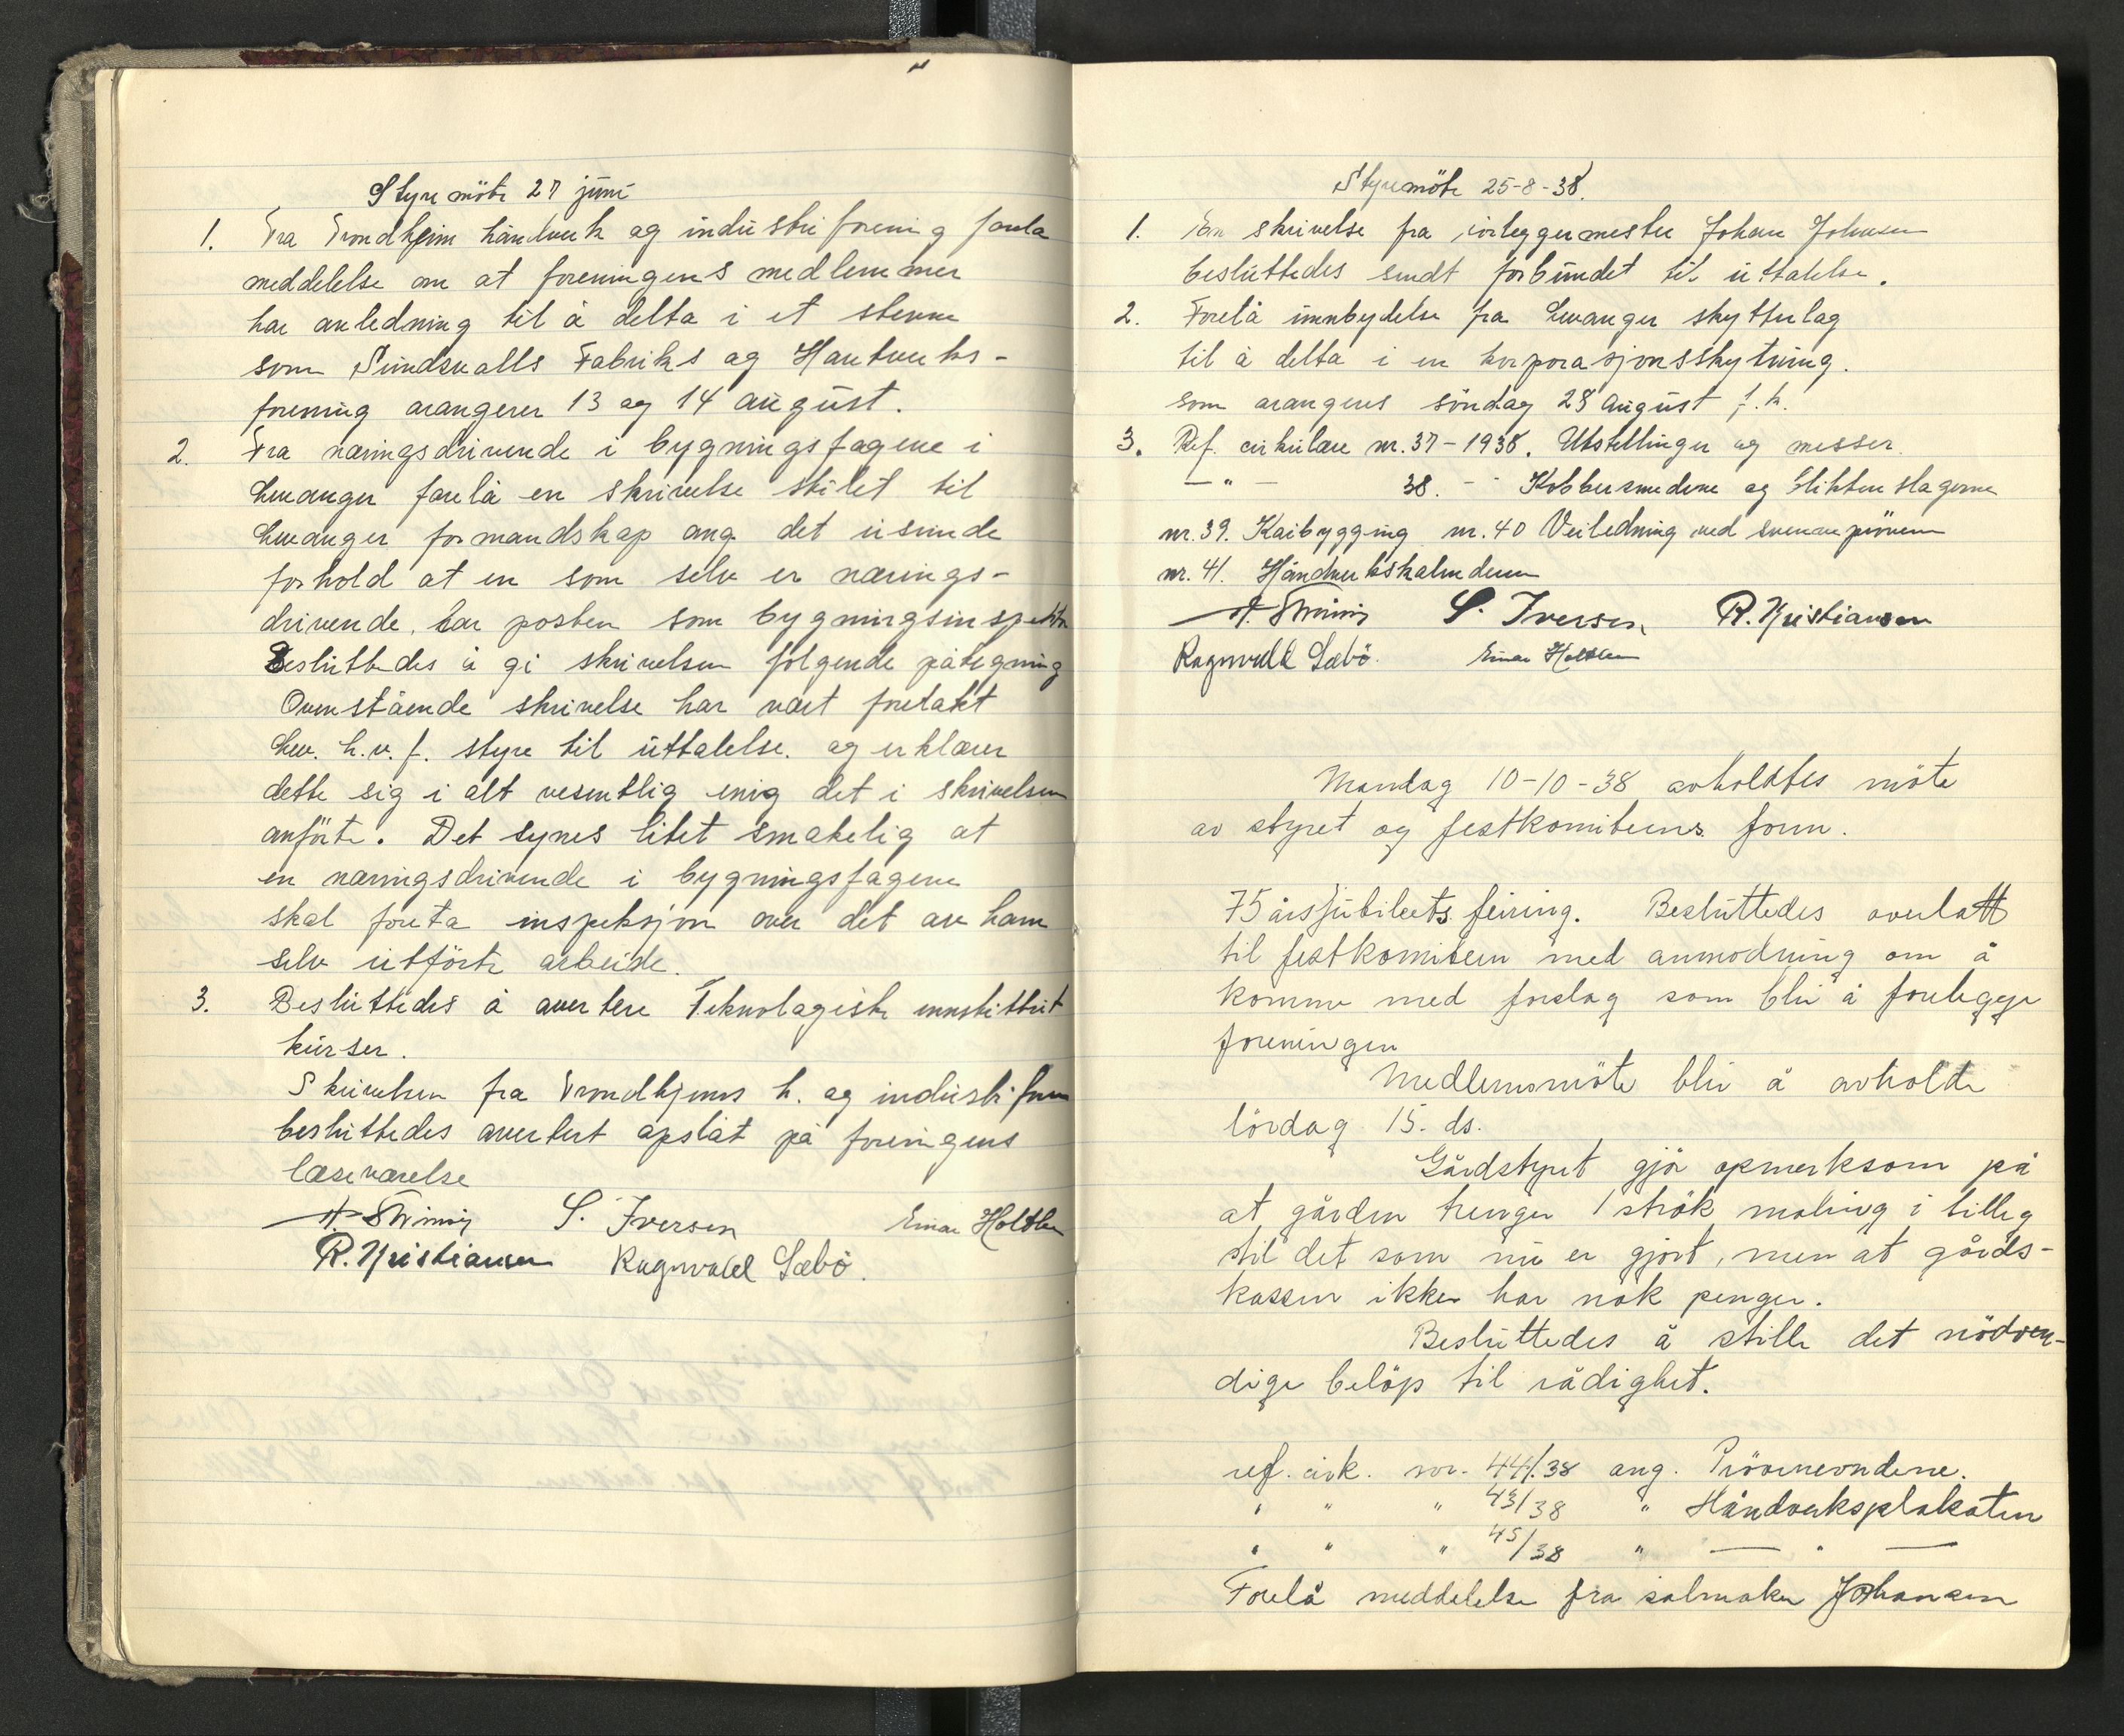 Styremöte 27 juni
1. Fra Trondhjeim håndverk og industriforening forela
meddelelse om at foreningens medlemmer
har anledning til å delta i et stevne
som Sundsvalls Fabriks og Hantverks-
forening arangerer 13 og 14 august.
2. Fra næringsdrivende i bygningsfagene i
Levanger forelå en skrivelse stilet til
Levanger formandskap ang. det usunde
forhold at en som selv er nærings-
drivende, har posten som bygningsinspektör
Besluttedes å gi skrivelsen fölgende påtegning
Ovenstående skrivelse har vært foretakt
Lev. h.v.f. styre til uttalelse. og erklærer
dette sig i alt vesentlig enig det i skrivelsen
anförte. Det synes litet smakelig at
en næringsdrivende i bygningsfagene
skal foreta inspeksjon over det av ham
selv utförte arbeide.
3. Besluttedes å avertere Teknologiske innstittut
kurser.
Skrivelsen fra Trondhjems h. og industrifor
besluttedes avertert opslåt på foreningens
læseværelse
S. Iversen Einar Holtlen
R. Kristiansen Ragnvald Sæbö.
Styremöte 25-8-38.
1. En skrivelse fra rörleggermester Johan Johnsen
besluttedes sendt forbundet til uttalelse.
2. Forelå innbydelse fra Levanger skytterlag
til å delta i en korporasjonsskytning.
som arangeres söndag 28 august f.k.
3. Ref. cirkulære nr. 37-1938. Utstillinger og messer
— " — 38. - Kobbersmedene og blikkenslagerne
nr. 39. Kaibygging nr. 40 Veiledning ved svennepröven
nr. 41. Håndverkskalenderen
S. Iversen R. Kristiansen
Ragnvald Sæbö. Einar Holtlen
Mandag 10-10-38 avholdtes möte
av styret og festkomiteens form.
75 årsjubileets feiring. Besluttedes overlatt
til festkomiteen med anmodning om å
komme med forslag som blir å forelegge
foreningen
Medlemsmöte blir å avholde
lördag 15. ds.
Gårdstyret gjör opmerksom på
at gården trenger 1 strök maling i tillegg
til det som nu er gjort, men at gårds-
kassen ikke har nok penger.
Besluttedes å stille det nödven-
dige belöp til rådighet.
ref. cirk. nr. 44/38 ang. Prövenevndene.
" " " 43/38 " Håndverksplakaten
" " " 45/38 " — " —
Forelå meddelelse fra salmaker Johansen